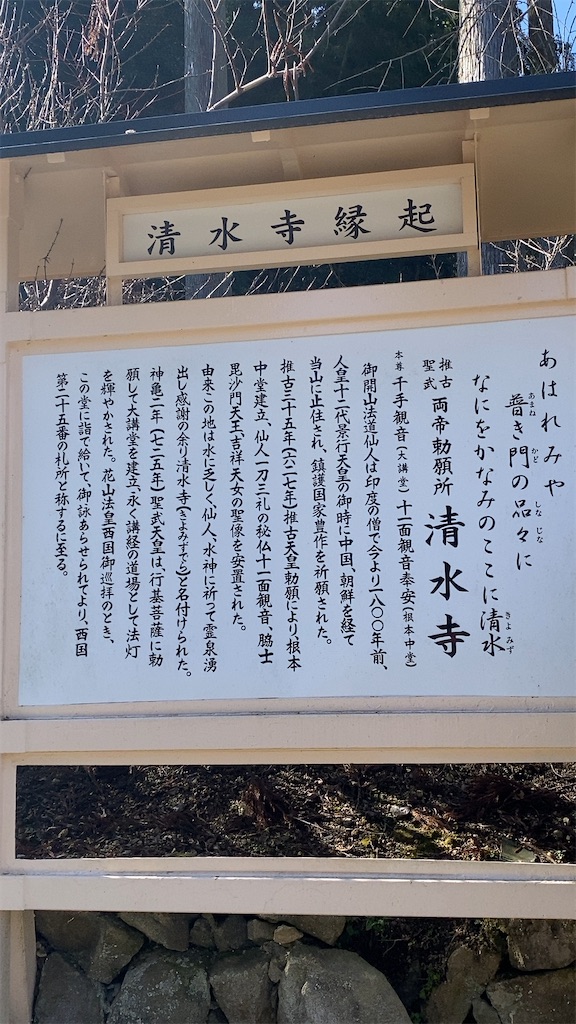 清水寺縁起
あはれみや
普き門の品々に
あまね かど しな じな
なにをかなみのここに清水
きよ みず
推古
聖武
両帝勅願所 清水寺
本尊 千手観音(大講堂) 十一面観音奉安(根本中堂)
御開山法道仙人は印度の僧で今より一八〇〇年前、
人皇十二代景行天皇の御時に中国、朝鮮を経て
当山に止住され、鎮護国家豊作を祈願された。
推古三十五年(六二七年)推古天皇勅願により、根本
中堂建立、仙人一刀三礼の秘仏十一面観音、脇士
毘沙門天王、吉祥天女の聖像を安置された。
由来この地は水に乏しく仙人、水神に祈って霊泉湧
出し感謝の余り清水寺(きよみずでら)と名付けられた。
神亀二年(七二五年)聖武天皇は、行基菩薩に勅
願して大講堂を建立、永く講経の道場として法灯
を輝やかされた。花山法皇西国御巡拝のとき、
この堂に詣で給いて、御詠あらせられてより、西国
第二十五番の札所と称するに至る。